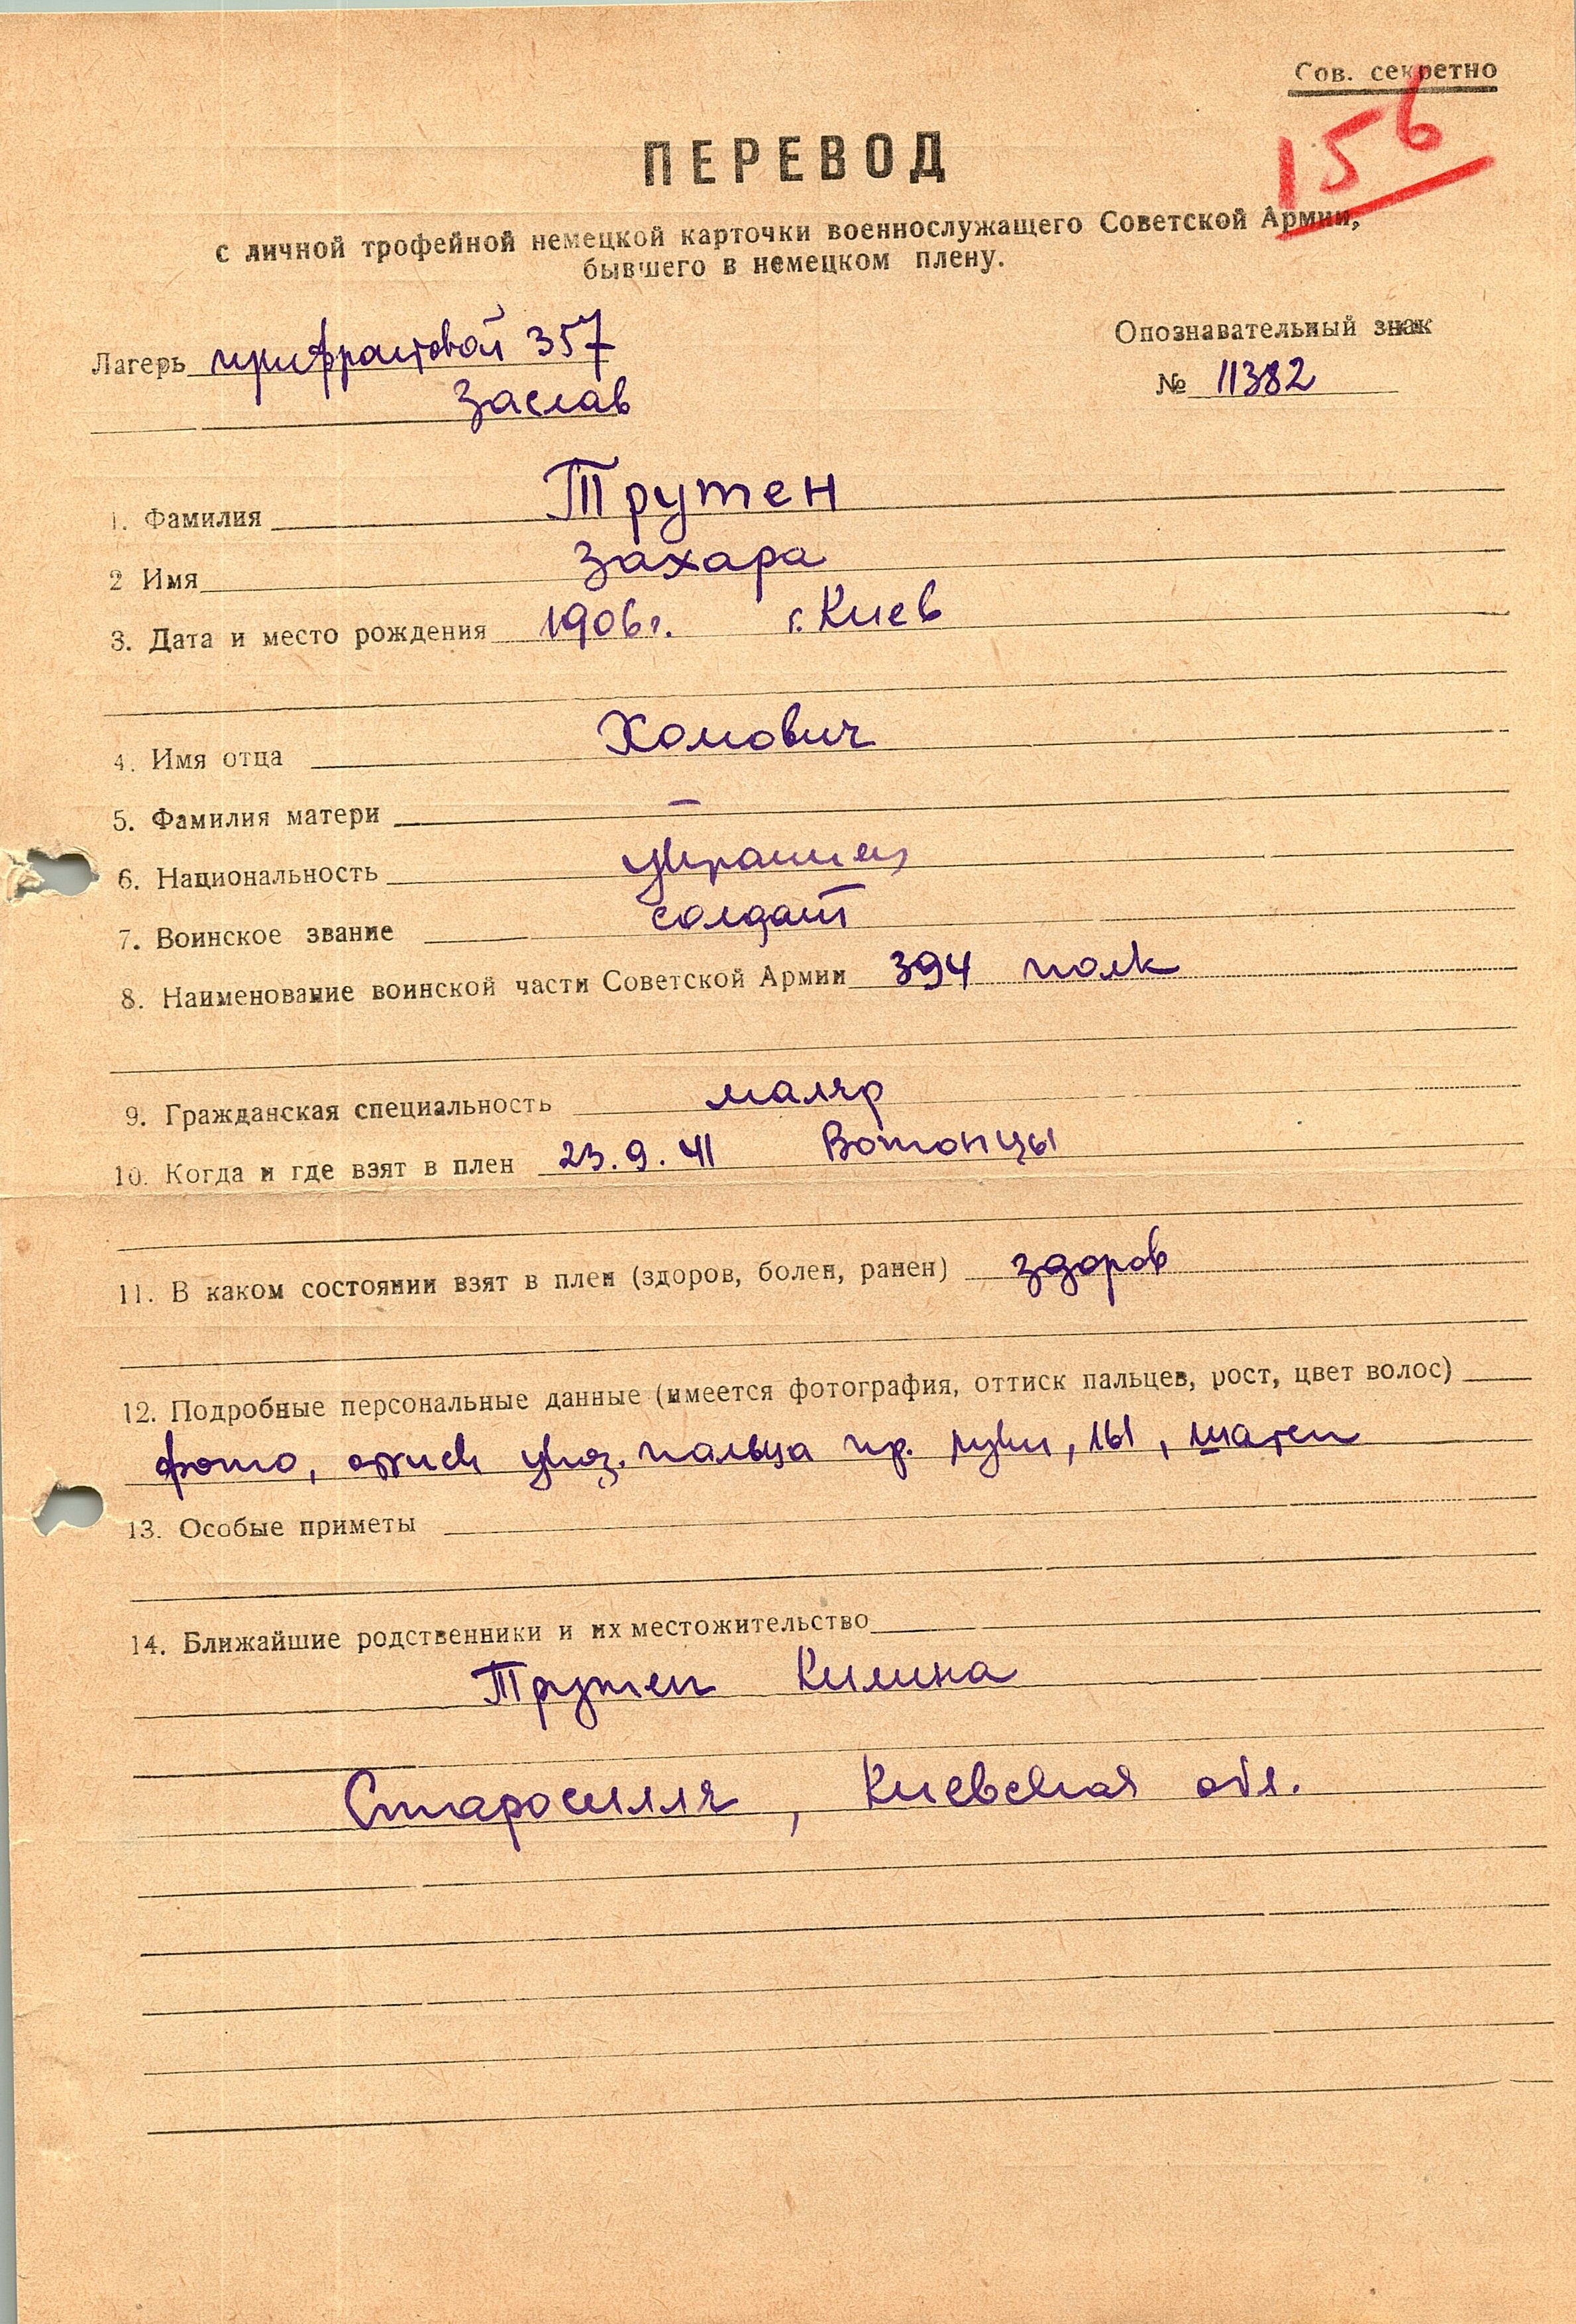 Сов. секретно
156
ПЕРЕВОД
с личной трофейной немецкой карточки военнослужащего Советской Армии,
бывшего в немецком плену.
Лагерь прифронтовой 357
Заслав
Опознавательный знак
№ 11382
1. Фамилия Трутен
2 Имя Захара
3. Дата и место рождения 1906г. г. Киев
4. Имя отца Хомович
5. Фамилия матери —
6. Национальность украинец
7. Воинское звание солдат
8. Наименование воинской части Советской Армии 394 полк
9. Гражданская специальность маляр
10. Когда и где взят в плен 23.9.41 Вотонцы
11. В каком состоянии взят в плен (здоров, болен, ранен) здоров
12. Подробные персональные данные (имеется фотография, оттиск пальцев, рост, цвет волос)
фото, оттиск указ. пальца пр. руки, 161, шатен
13. Особые приметы
14. Ближайшие родственники и их местожительство
Трутен Килина
Старосилля, Киевская обл.